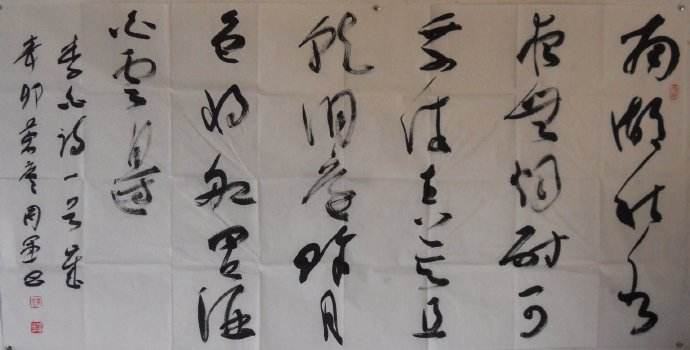 南湖秋水
夜無烟耐可
乘流直上天且
就洞庭賒月
色將船買酒
白雲邊
李白詩一首歲
辛卯周墨書